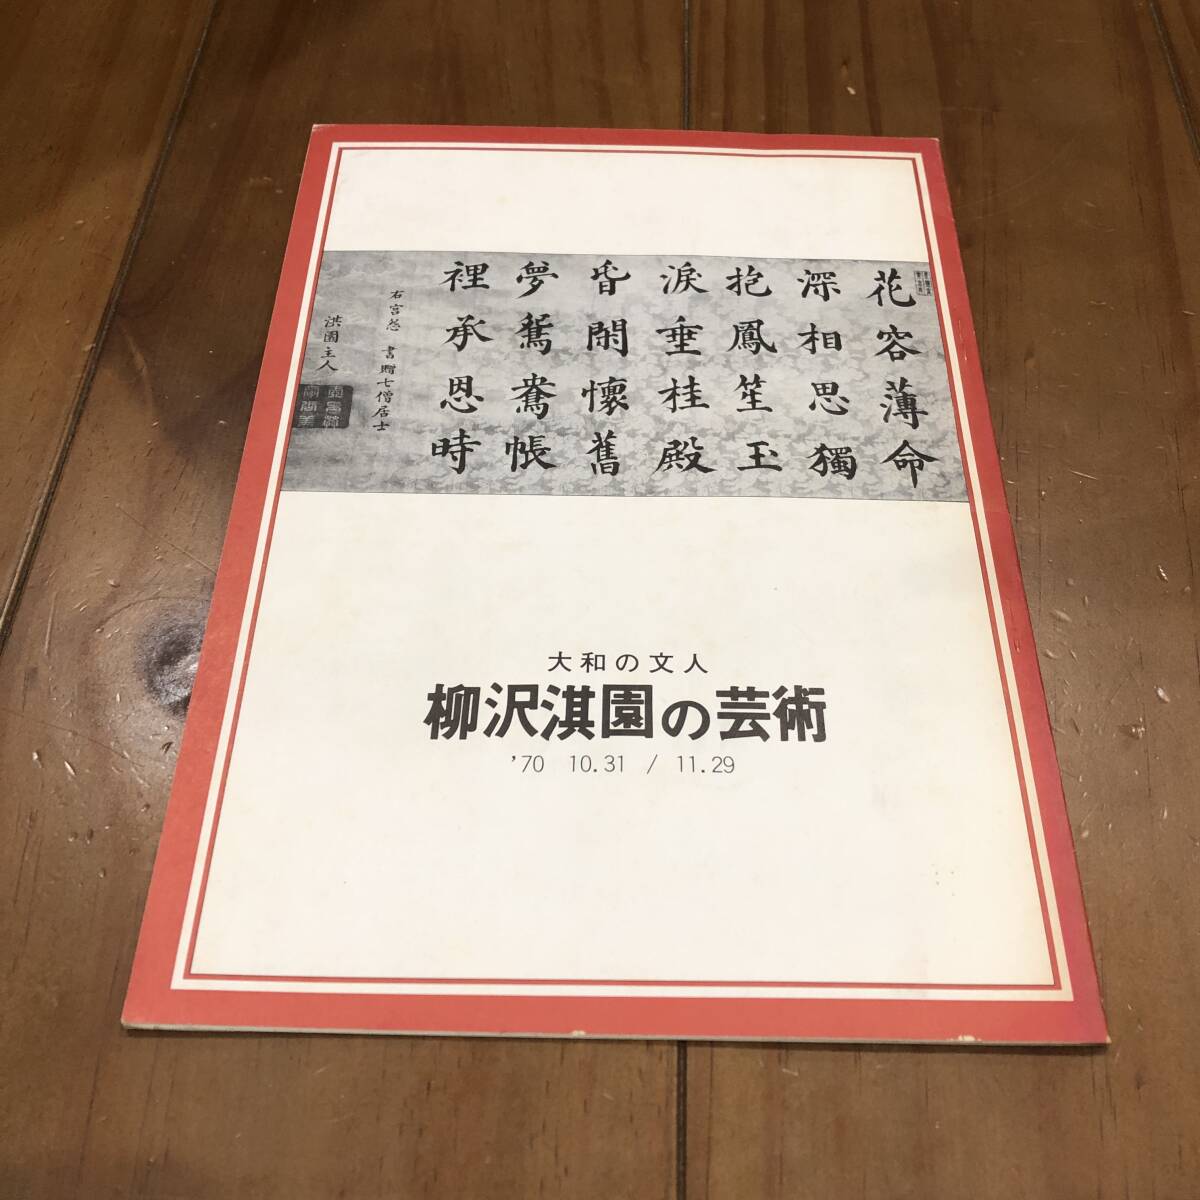 花容薄命
深相思獨
抱鳳笙玉
淚垂桂殿
昏閑懷舊
夢鴛鴦帳
裡承恩時
右宮怨 書贈七僧居士
淇園主人
大和の文人
柳沢淇園の芸術
'70 10.31 / 11.29